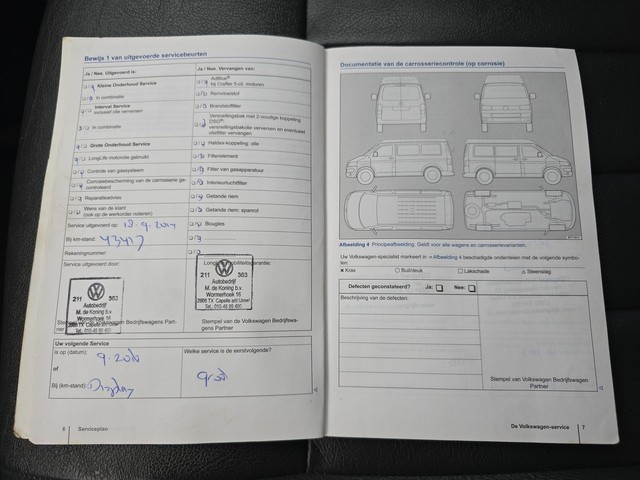 Bewijs 1 van uitgevoerde servicebeurten
Ja / Nee. Uitgevoerd is:
Kleine Onderhoud Service
In combinatie
Interval Service
inclusief olie verversen
In combinatie
Grote Onderhoud Service
LongLife motorolie gebruikt
Controle van gassysteem
Corrosiebescherming van de carrosserie ge-
controleerd
Reparatieadvies
Wens van de klant
(ook op de werkorder noteren)
Service uitgevoerd
Bij km-stand:
Rekeningnummer:
Service uitgevoerd door:
211 303
Autobedrijf
M. de Koning b.v.
Wormerhoek 16
Stempel van de Volkswagen Bedrijfswagens Part-
ner
Uw volgende Service
is op (datum):
of
Bij (km-stand): Display
Ja / Nee. Vervangen van:
AdBlue®
bij Crafter 5-cil. motoren
Remvloeistof
Brandstoffilter
Versnellingsbak met 2-voudige koppeling
DSG®:
versnellingsbakolie verversen en eventueel
oliefilter vervangen
Haldex koppeling: olie
Filterelement
Filter van gasapparatuur
Interieurluchtfilter
Getande riem
Getande riem: spanrol
Bougies
211 303
Autobedrijf
M. de Koning b.v.
Wormerhoek 16
Stempel van de Volkswagen Bedrijfswa-
gens Partner
Welke service is de eerstvolgende?
6 Serviceplan
Documentatie van de carrosseriecontrole (op corrosie)
Afbeelding 4 Principeafbeelding. Geldt voor alle wagens en carrosserievarianten.
Uw Volkswagen-specialist markeert in → Afbeelding 4 beschadigde onderdelen met de volgende symbo-
len:
× Kras
□ Buil/deuk
○ Lakschade
△ Steenslag
Defecten geconstateerd? Ja: Nee:
Beschrijving van de defecten:
Stempel van Volkswagen Bedrijfswagens
Partner
De Volkswagen-service 7